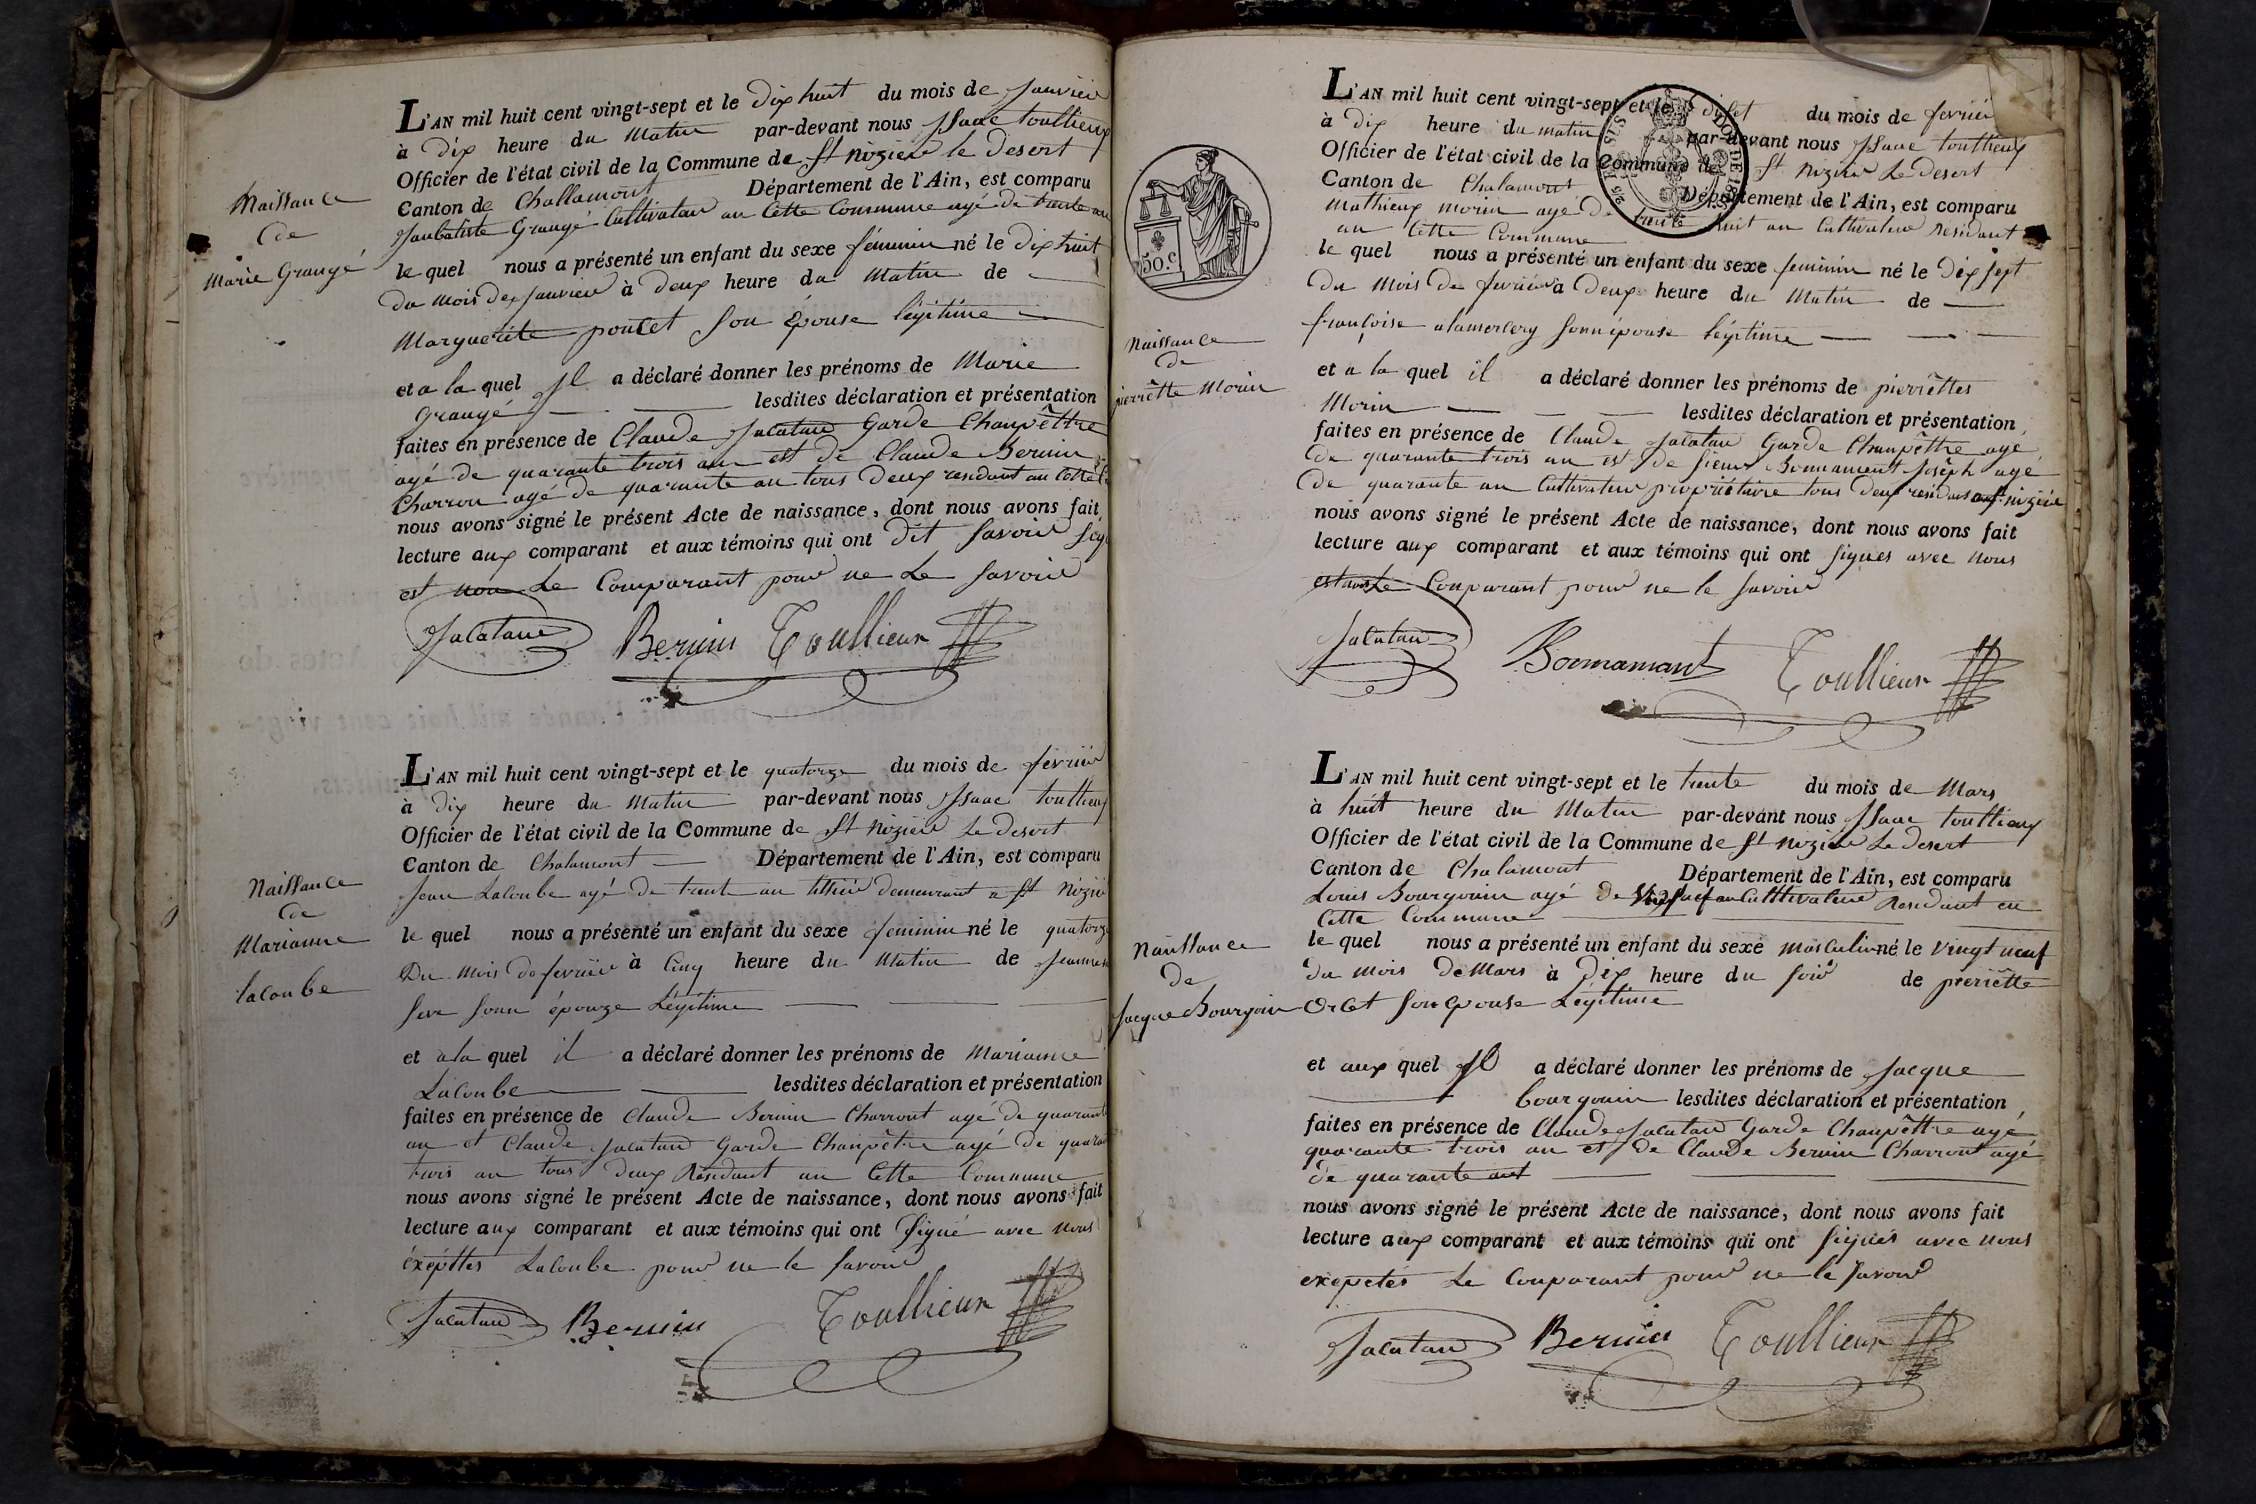 Naissance
de
Marie Grangé
L'AN mil huit cent vingt-sept et le dix huit du mois de janvier
à dix heure du matin par-devant nous Isaac toullieux
Officier de l'état civil de la Commune de St nizier le desert
Canton de Challamont Département de l'Ain, est comparu
Janbatiste Grangé Cultivateur an Cette Commune agé de trante an
le quel nous a présenté un enfant du sexe féminin né le dix huit
du mois de janvier à deux heure du matin de
Marguerite poncet son épouse légitime
et a la quel Jl a déclaré donner les prénoms de Marie
Grangé lesdites déclaration et présentation
faites en présence de Claude Jacatau Garde Chanpêttre
agé de quarante trois an est de Claude Bernin
Charron agé de quarante an tous deux residant an Cette
nous avons signé le présent Acte de naissance, dont nous avons fait
lecture aux comparant et aux témoins qui ont dit savoir
est non Le Comparant pour ne Le savoir
Jacatau Bernin Toullieux
Naissance
de
Marianne
Lacoube
L'AN mil huit cent vingt-sept et le quatorze du mois de fevrier
à dix heure du Matin par-devant nous Isaac toullieux
Officier de l'état civil de la Commune de St nizier Le desert
Canton de Chalamont Département de l'Ain, est comparu
Jean Lacoube agé de trente an demeurant a St Nizier
le quel nous a présenté un enfant du sexe feminin né le quatorze
Du mois de fevrier à Cinq heure du Matin de
son épouze Légitime
et a la quel il a déclaré donner les prénoms de Marianne
Lacoube lesdites déclaration et présentation
faites en présence de Claude Bernin Charront agé de quarante
an et Claude Jacatau Garde Chanpêtre agé De
trois an tous deux Résidant an Cette Commune
nous avons signé le présent Acte de naissance, dont nous avons fait
lecture aux comparant et aux témoins qui ont signé avec nous
éxépttes Lacoube pour ne le savoir
Jacatau Bernin Toullieux
50.c
Naissance
de
pierrêtte Morin
L'AN mil huit cent vingt-sept et le du mois de fevrier
à dix heure du matin par-devant nous Isaac toullieux
Officier de l'état civil de la Commune de St nizier Le desert
Canton de Chalamont Département de l'Ain, est comparu
Mathieux morin agé de trente huit an Cultivateur Residant
an Cette Commune
le quel nous a présenté un enfant du sexe feminin né le dix sept
du Mois de fevrier à Deux heure du Matin de
françoise alamercery sonn épouse légitime
et a la quel il a déclaré donner les prénoms de pierrêttes
Morin lesdites déclaration et présentation
faites en présence de Claude Jacatau Garde Chanpêttre agé
de quarante trois an est de sieur Bonnament Joseph agé
de quarante an Cultivateur propriétaire tous deux residans a St nizier
nous avons signé le présent Acte de naissance, dont nous avons fait
lecture aux comparant et aux témoins qui ont signés avec nous
est non Le Conparant pour ne le savoir
Jacatau Bonnamant Toullieux
Naissance
de
Jacque Bourgoin
L'AN mil huit cent vingt-sept et le trente du mois de Mars
à huit heure du Matin par-devant nous Isaac toullieux
Officier de l'état civil de la Commune de St nizier Le desert
Canton de Chalamont Département de l'Ain, est comparu
Louis Bourgouin agé de an Cultivateur Residant en
Cette Commune
le quel nous a présenté un enfant du sexe masculin né le vingt neuf
du mois de Mars à Dix heure du soir de pierrêtte
Orcet son épouse Légitime
et aux quel Jl a déclaré donner les prénoms de Jacque
bourgouin lesdites déclaration et présentation
faites en présence de Claude Jacatau Garde Chanpêttre agé
quarante trois an et de Claude Bernin Charront agé
de quarante ant
nous avons signé le présent Acte de naissance, dont nous avons fait
lecture aux comparant et aux témoins qui ont signés avec nous
exepetés Le Conparant pour ne le savoir
Jacatau Bernin Toullieux